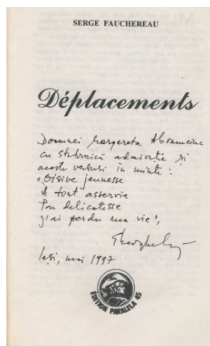 SERGE FAUCHEREAU
Déplacements
Doamnei Margareta Abramciuc
cu statornică admirație și
aceste versuri în minte:
„Oisive jeunesse
A tout asservie
Par délicatesse
j'ai perdu ma vie",
Iași, mai 1997
EDITION PARALELA 45